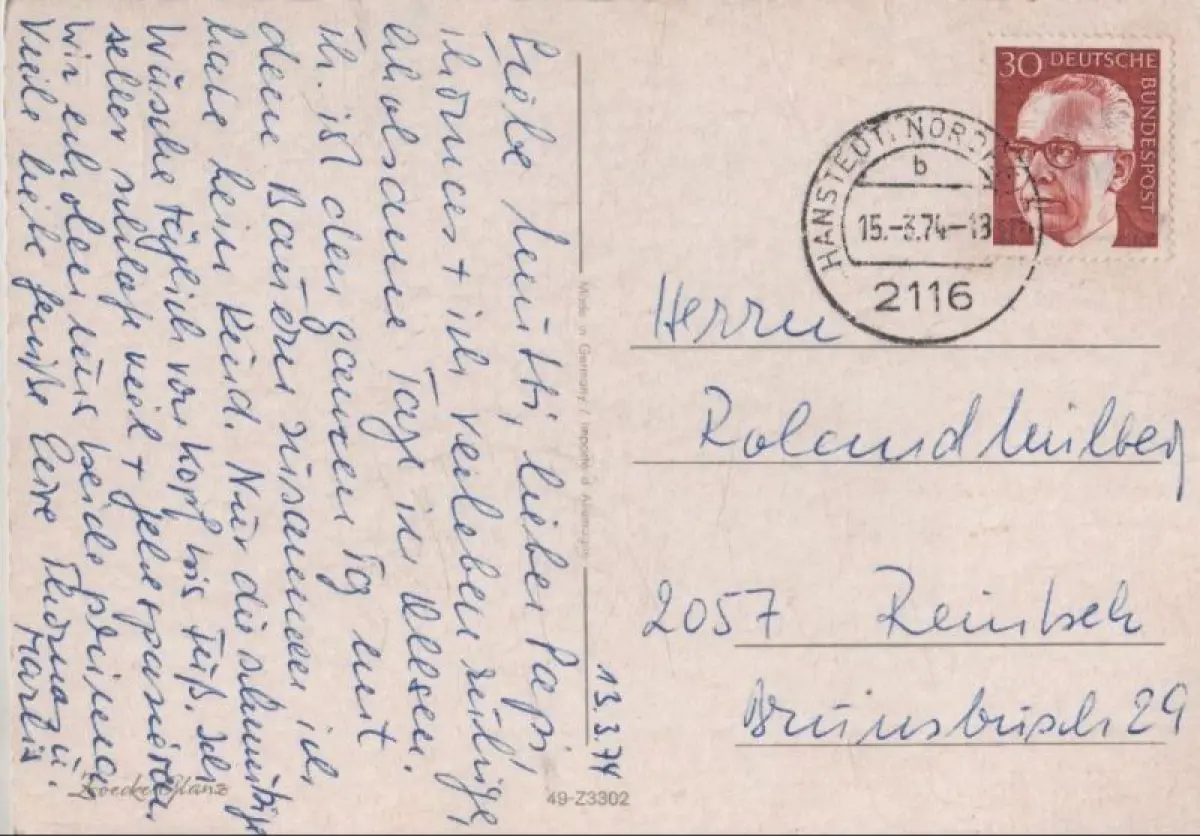 Liebe Mutti, lieber Papi!
Thomas + ich verleben ruhige,
erholsame Tage in Ollsen.
Th. ist den ganzen Tag mit
dem Bauern zusammen ich
habe kein Kind. Nur die schmutzige
Wäsche täglich von Kopf bis Fuß. Ich
selber schlafe viel + gehe spazieren.
Wir erholen uns beide prima.
Viele liebe Grüße Eure Thomas u.
Marlis
13.3.74
Zwecker Glanz
49-Z3302
Made in Germany / Importé d'Allemagne
30 DEUTSCHE BUNDESPOST
HANSTEDT, NORDH
b
15.-3.74-18
2116
Herrn
Roland
2057 Reinbek
Brunsbusch 29